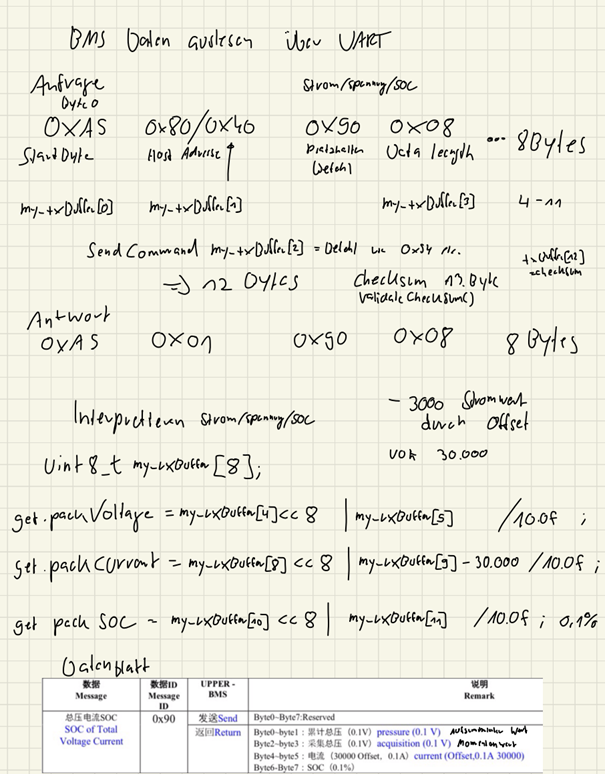 BMS Daten auslesen über UART
Anfrage
Byte 0
Strom/spannung/SOC
0XA5 0x80/0x40 0x90 0x08 ... 8Bytes
StartByte Host Adresse Platzhalter Data length
Befehl
my_txBuffer[0] my_txBuffer[1] my_txBuffer[3] 4-11
SendCommand my_txBuffer[2] = Befehl wie 0x94 etc.
txBuffer[12]
=checksum
=> 12 Bytes Checksum 13. Byte
ValidateChecksum()
Antwort
0XA5 0X01 0x90 0x08 8 Bytes
Interpretieren Strom/spannung/SOC
- 3000 Stromwert
durch Offset
von 30.000
Uint8_t my_rxBuffer[8];
get.packVoltage = my_rxBuffer[4]<< 8 | my_rxBuffer[5] /10.0f ;
get.packCurrent = my_rxBuffer[8] << 8 | my_rxBuffer[9] - 30.000 /10.0f ;
get pack SOC = my_rxBuffer[10] << 8 | my_rxBuffer[11] /10.0f ; 0,1%
Datenblatt
数据 数据ID UPPER - 说明
Message Message BMS Remark
ID
总压电流SOC 0x90 发送Send Byte0~Byte7:Reserved
SOC of Total
Voltage Current
返回Return Byte0~byte1：累计总压 (0.1V) pressure (0.1 V)
Byte2~byte3：采集总压 (0.1V) acquisition (0.1 V) Momentanwert
Byte4~byte5：电流 (30000 Offset, 0.1A) current (Offset,0.1A 30000)
Byte6~Byte7：SOC (0.1%)